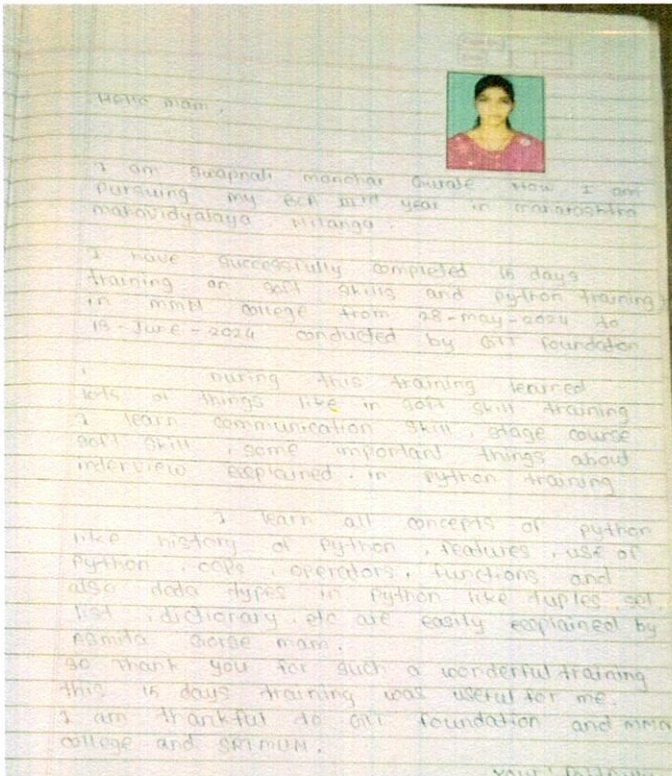 Hello mam,
I am Swapnali manohar Now I am
pursuing my BCA IIIrd year in maharashtra
mahavidyalaya, Nilanga.
I have successfully completed 15 days
training on soft skills and python training
in MMN college from 28-may-2024 to
13-June-2024 conducted by GTT foundation
During this training learned
lots of things like in soft skill training
I learn communication skill, stage course
soft skill, some important things about
interview explained. in python training
I learn all concepts of python
like history of python, features, use of
python, oops, operators, functions and
also data types in python like tuples, set
list, dictionary, etc are easily explained by
Asmita mam.
so thank you for such a wonderful training
this 15 days training was useful for me.
I am thankful to GTT foundation and MMN
college and SRTMUN.